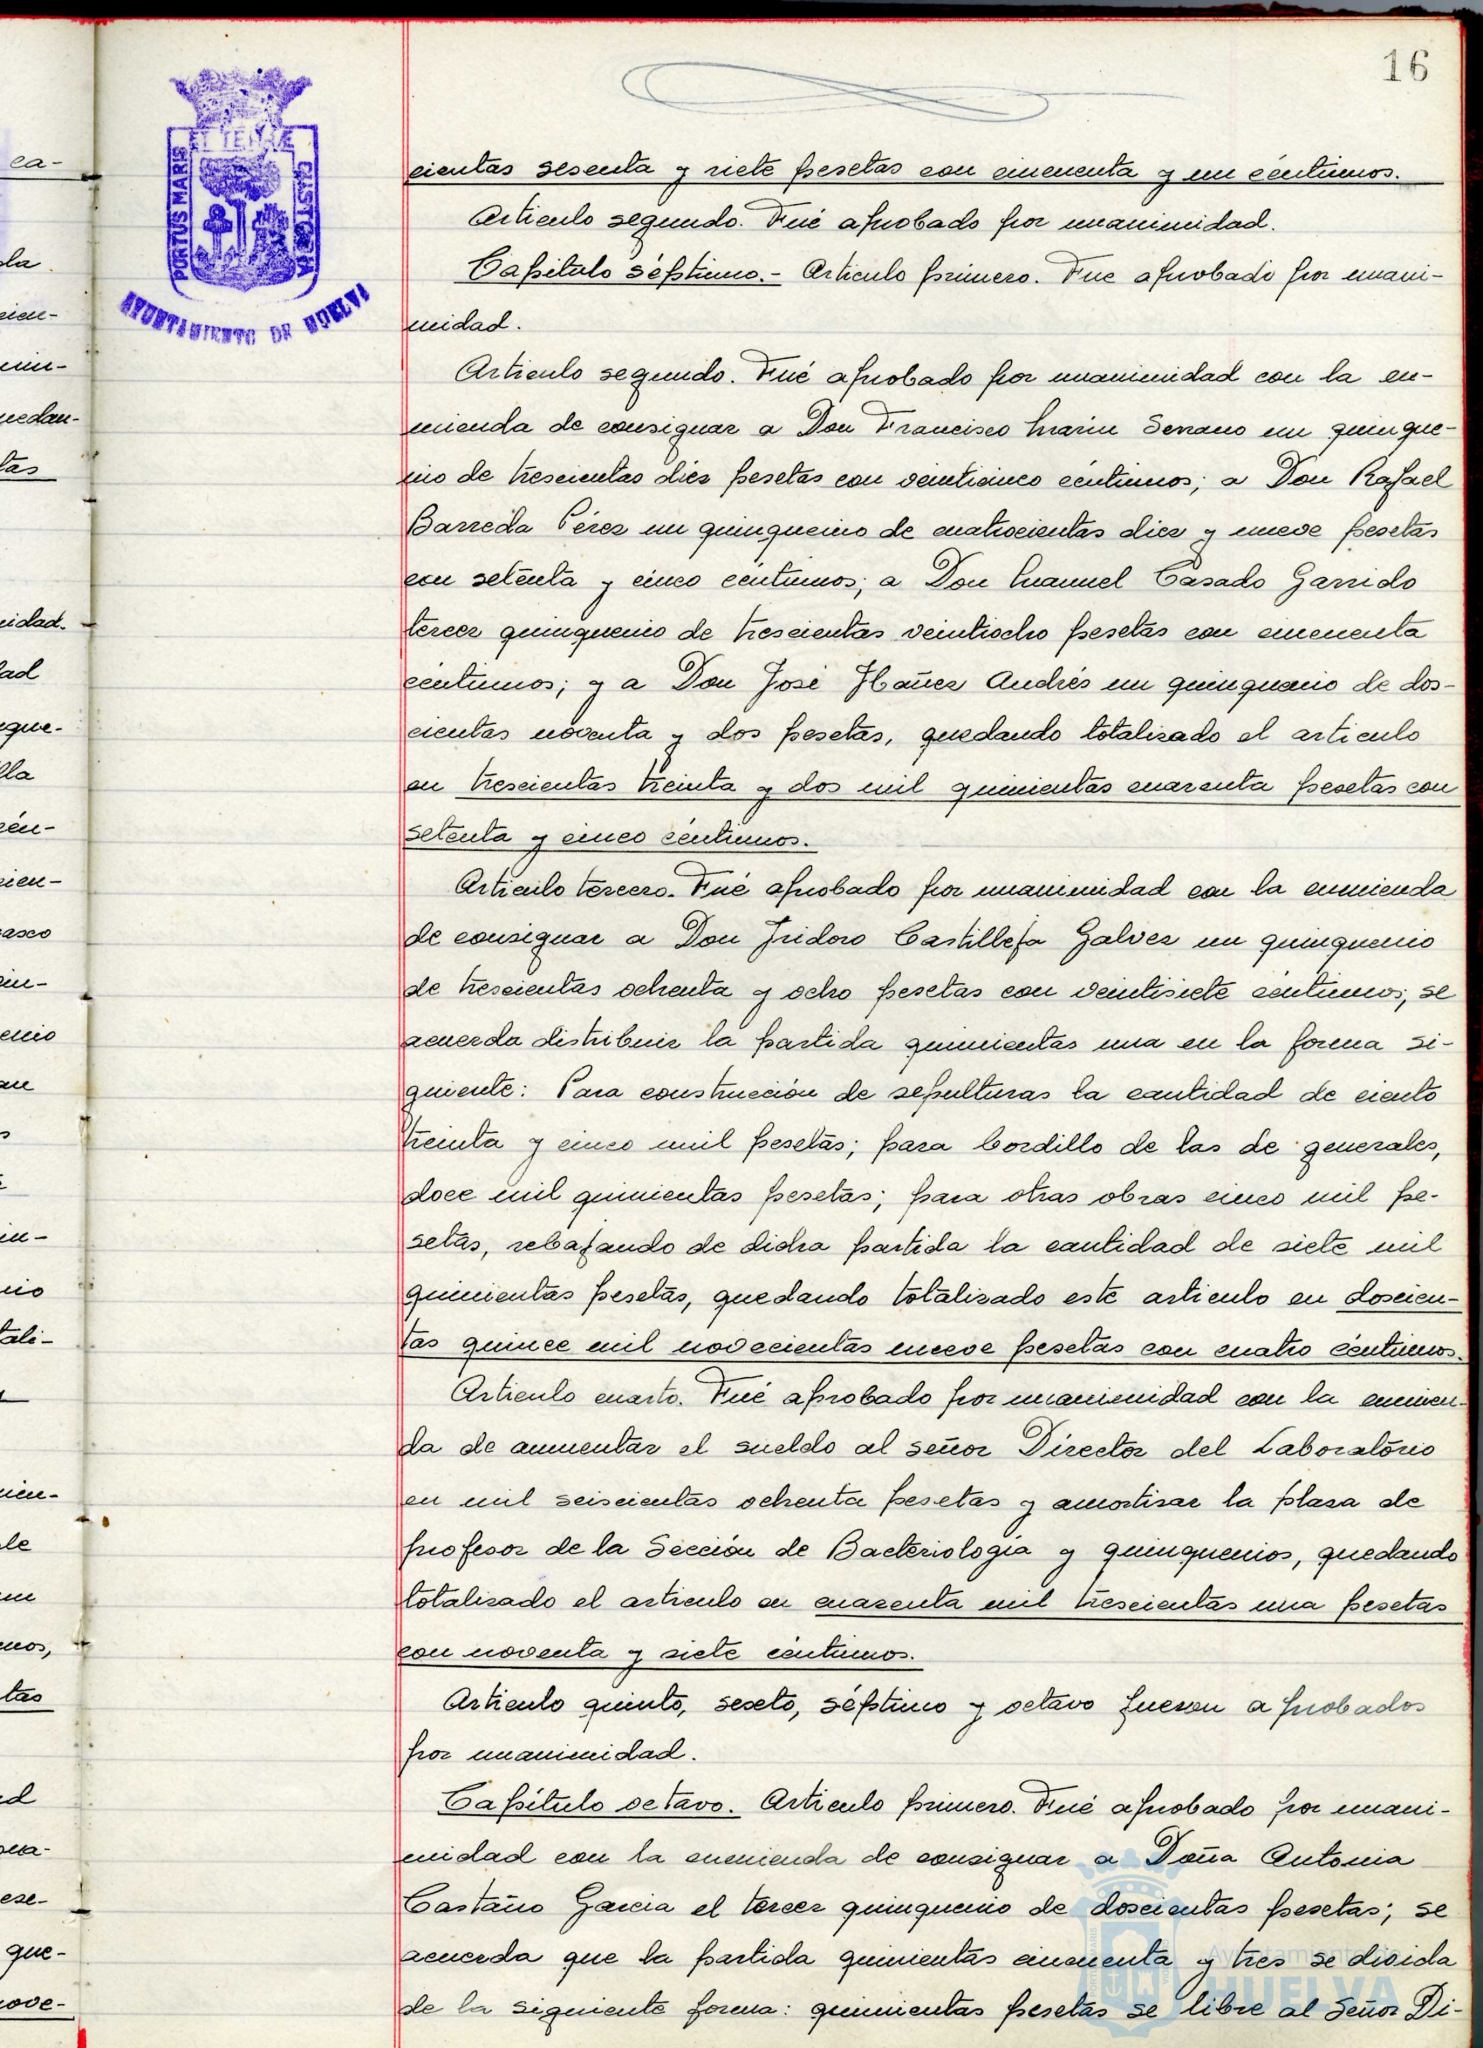 16
PORTUS MARIS ET TERRÆ CUSTODIA
AYUNTAMIENTO DE HUELVA
cientas sesenta y siete pesetas con cincuenta y un céntimos.
Articulo segundo. Fué aprobado por unanimidad.
Capítulo séptimo.- Articulo primero. Fue aprobado por unani-
midad.
Articulo segundo. Fué aprobado por unanimidad con la en-
mienda de consignar a Don Francisco Marin Serrano un quinque-
nio de trescientas diez pesetas con veinticinco céntimos; a Don Rafael
Barreda Pérez un quinquenio de cuatrocientas diez y nueve pesetas
con setenta y cinco céntimos; a Don Manuel Casado Garrido
tercer quinquenio de trescientas veintiocho pesetas con cincuenta
céntimos; y a Don José Ibañez Andrés un quinquenio de dos-
cientas noventa y dos pesetas, quedando totalizado el articulo
en trescientas treinta y dos mil quinientas cuarenta pesetas con
setenta y cinco céntimos.
Articulo tercero. Fué aprobado por unanimidad con la enmienda
de consignar a Don Isidoro Castilleja Galvez un quinquenio
de trescientas ochenta y ocho pesetas con veintisiete céntimos; se
acuerda distribuir la partida quinientas una en la forma si-
guiente: Para construcción de sepulturas la cantidad de ciento
treinta y cinco mil pesetas; para bordillo de las de generales,
doce mil quinientas pesetas; para otras obras cinco mil pe-
setas, rebajando de dicha partida la cantidad de siete mil
quinientas pesetas, quedando totalizado este articulo en doscien-
tas quince mil novecientas nueve pesetas con cuatro céntimos.
Articulo cuarto. Fué aprobado por unanimidad con la enmien-
da de aumentar el sueldo al señor Director del Laboratorio
en mil seiscientas ochenta pesetas y amortizar la plaza de
profesor de la Sección de Bacteriología y quinquenios, quedando
totalizado el articulo en cuarenta mil trescientas una pesetas
con noventa y siete céntimos.
Articulo quinto, sexto, séptimo y octavo fueron aprobados
por unanimidad.
Capítulo octavo. Articulo primero. Fué aprobado por unani-
midad con la enmienda de consignar a Doña Antonia
Castaño Garcia el tercer quinquenio de doscientas pesetas; se
acuerda que la partida quinientas cincuenta y tres se divida
de la siguiente forma: quinientas pesetas se libre al Señor Di-
Ayuntamiento de
HUELVA